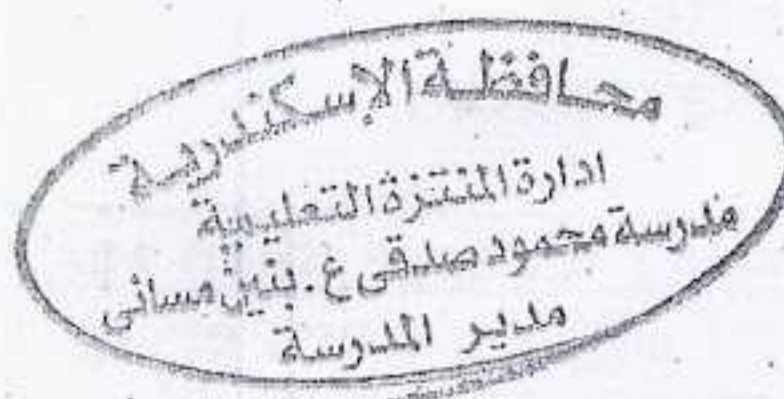 محافظة الإسكندرية
ادارة المنتزة التعليمية
مدرسة محمود صدقى ع. بنين مسائى
مدير المدرسة